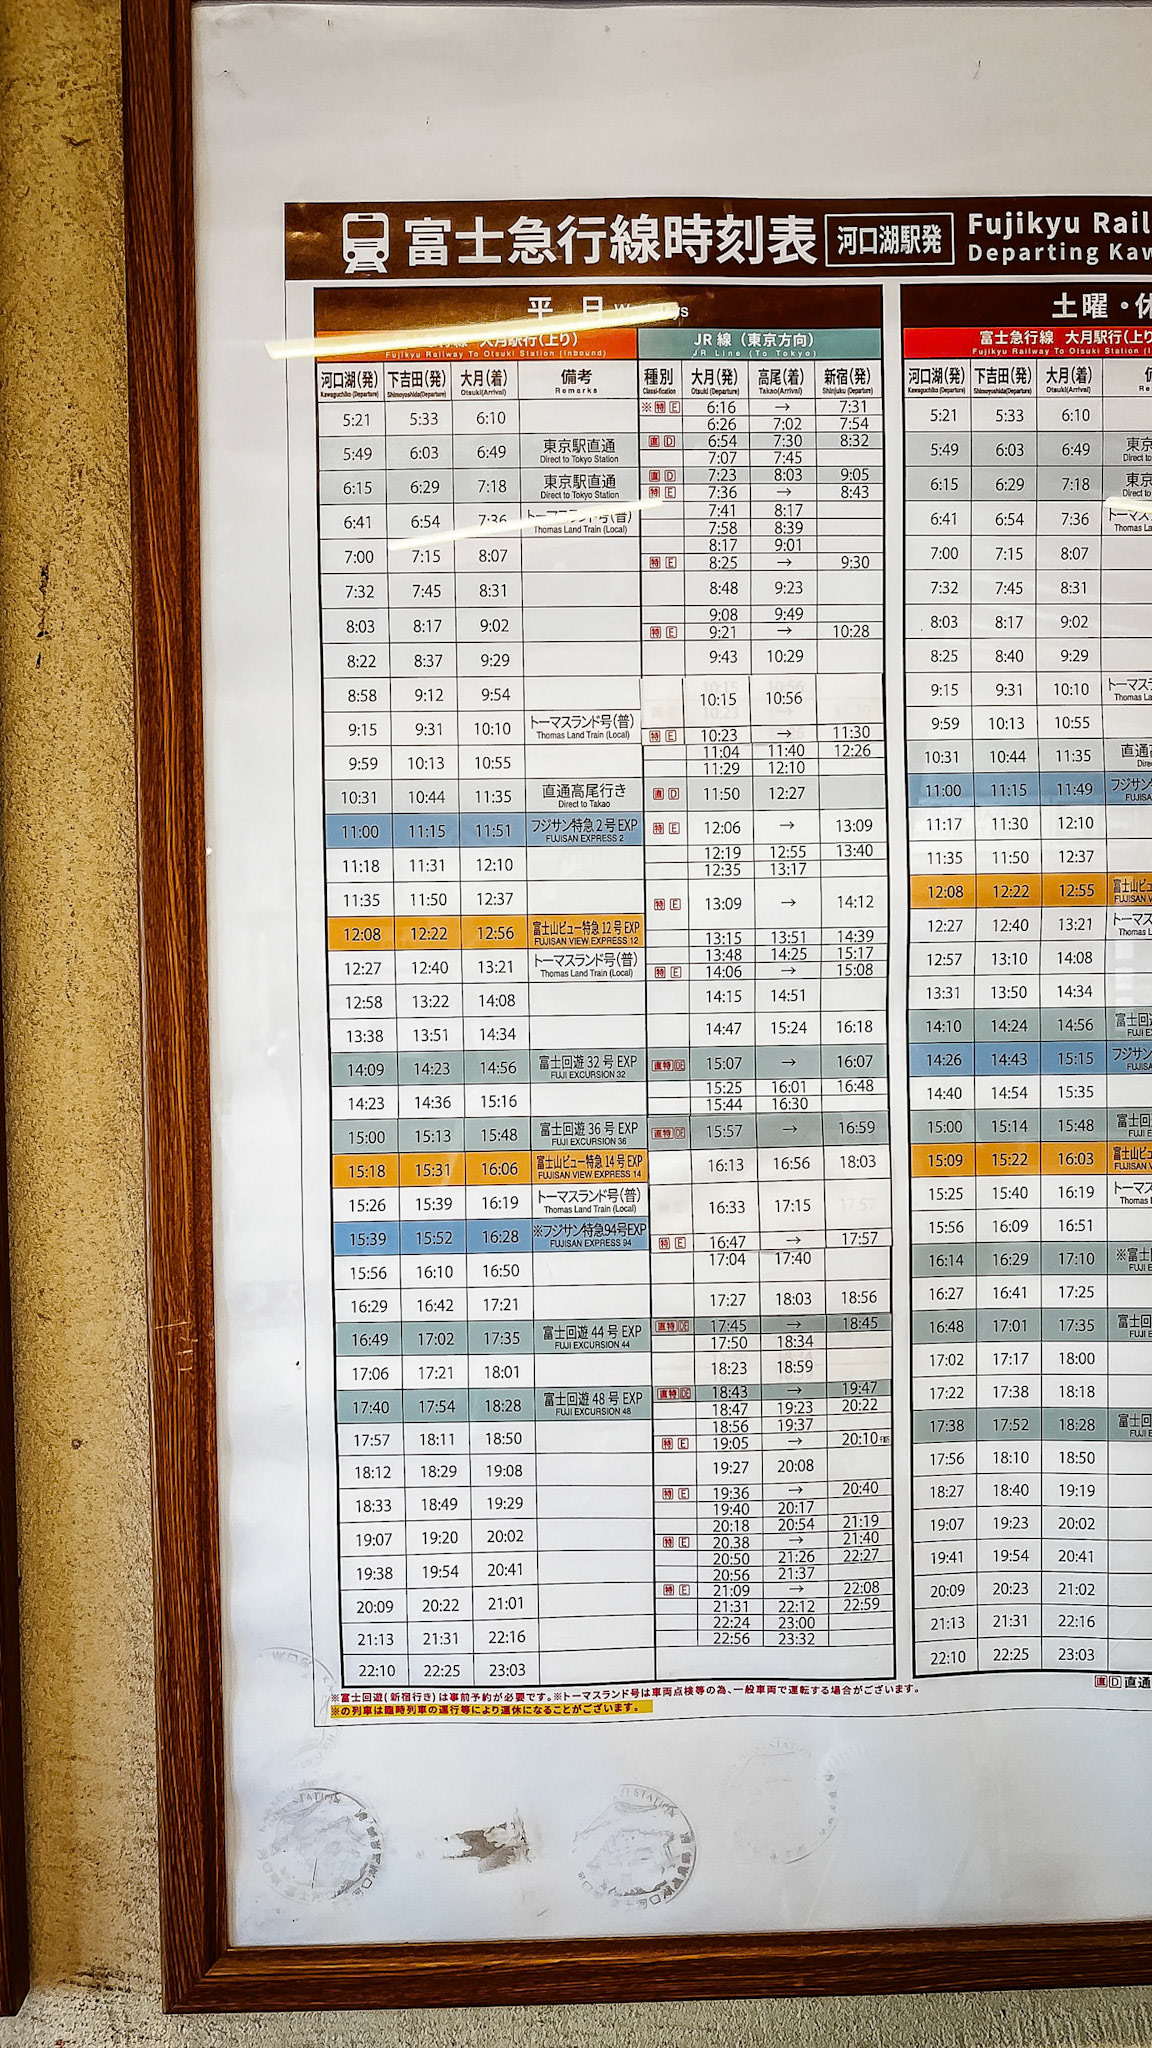 富士急行線時刻表 河口湖駅発 Fujikyu Rail
Departing Kaw
平 日
土曜・休
大月駅行(上り)
Fujikyu Railway To Otsuki Station (Inbound)
JR 線 (東京方向)
JR Line (To Tokyo)
富士急行線 大月駅行(上り
Fujikyu Railway To Otsuki Station (I
河口湖(発) 下吉田(発) 大月(着) 備考 種別 大月(発) 高尾(着) 新宿(発) 河口湖(発) 下吉田(発) 大月(着)
Kawaguchiko (Departure) Shimoyoshida(Departure) Otsuki(Arrival) Remarks Classification Otsuki (Departure) Takao(Arrival) Shinjuku (Departure) Kawaguchiko (Departure) Shimoyoshida(Departure) Otsuki(Arrival)
5:21 5:33 6:10
5:49 6:03 6:49 東京駅直通
Direct to Tokyo Station
6:15 6:29 7:18 東京駅直通
Direct to Tokyo Station
6:41 6:54 7:36 トーマスランド号(普)
Thomas Land Train (Local)
7:00 7:15 8:07
7:32 7:45 8:31
8:03 8:17 9:02
8:22 8:37 9:29
8:58 9:12 9:54
9:15 9:31 10:10 トーマスランド号(普)
Thomas Land Train (Local)
9:59 10:13 10:55
10:31 10:44 11:35 直通高尾行き
Direct to Takao
11:00 11:15 11:51 フジサン特急 2 号 EXP
FUJISAN EXPRESS 2
11:18 11:31 12:10
11:35 11:50 12:37
12:08 12:22 12:56 富士山ビュー特急 12 号 EXP
FUJISAN VIEW EXPRESS 12
12:27 12:40 13:21 トーマスランド号(普)
Thomas Land Train (Local)
12:58 13:22 14:08
13:38 13:51 14:34
14:09 14:23 14:56 富士回遊 32 号 EXP
FUJI EXCURSION 32
14:23 14:36 15:16
15:00 15:13 15:48 富士回遊 36 号 EXP
FUJI EXCURSION 36
15:18 15:31 16:06 富士山ビュー特急 14 号 EXP
FUJISAN VIEW EXPRESS 14
15:26 15:39 16:19 トーマスランド号(普)
Thomas Land Train (Local)
15:39 15:52 16:28 ※フジサン特急94号EXP
FUJISAN EXPRESS 94
15:56 16:10 16:50
16:29 16:42 17:21
16:49 17:02 17:35 富士回遊 44 号 EXP
FUJI EXCURSION 44
17:06 17:21 18:01
17:40 17:54 18:28 富士回遊 48 号 EXP
FUJI EXCURSION 48
17:57 18:11 18:50
18:12 18:29 19:08
18:33 18:49 19:29
19:07 19:20 20:02
19:38 19:54 20:41
20:09 20:22 21:01
21:13 21:31 22:16
22:10 22:25 23:03
※ 特 E 6:16 → 7:31
6:26 7:02 7:54
直 D 6:54 7:30 8:32
7:07 7:45
直 D 7:23 8:03 9:05
特 E 7:36 → 8:43
7:41 8:17
7:58 8:39
8:17 9:01
特 E 8:25 → 9:30
8:48 9:23
9:08 9:49
特 E 9:21 → 10:28
9:43 10:29
10:15 10:56
特 E 10:23 → 11:30
11:04 11:40 12:26
11:29 12:10
直 D 11:50 12:27
特 E 12:06 → 13:09
12:19 12:55 13:40
12:35 13:17
特 E 13:09 → 14:12
13:15 13:51 14:39
13:48 14:25 15:17
特 E 14:06 → 15:08
14:15 14:51
14:47 15:24 16:18
直特 DE 15:07 → 16:07
15:25 16:01 16:48
15:44 16:30
直特 DE 15:57 → 16:59
16:13 16:56 18:03
16:33 17:15
特 E 16:47 → 17:57
17:04 17:40
17:27 18:03 18:56
直特 DE 17:45 → 18:45
17:50 18:34
18:23 18:59
直特 DE 18:43 → 19:47
18:47 19:23 20:22
18:56 19:37
特 E 19:05 → 20:10
19:27 20:08
特 E 19:36 → 20:40
19:40 20:17
20:18 20:54 21:19
特 E 20.38 → 21:40
20:50 21:26 22:27
20:56 21:37
特 E 21:09 → 22:08
21:31 22:12 22:59
22:24 23:00
22:56 23:32
5:21 5:33 6:10
5:49 6:03 6:49 東京
Direct to
6:15 6:29 7:18 東京
Direct to
6:41 6:54 7:36 トーマス
Thomas La
7:00 7:15 8:07
7:32 7:45 8:31
8:03 8:17 9:02
8:25 8:40 9:29
9:15 9:31 10:10 トーマス
Thomas La
9:59 10:13 10:55
10:31 10:44 11:35 直通
Direc
11:00 11:15 11:49 フジサン
FUJISA
11:17 11:30 12:10
11:35 11:50 12:37
12:08 12:22 12:55 富士山ビュ
FUJISAN V
12:27 12:40 13:21 トーマス
Thomas L
12:57 13:10 14:08
13:31 13:50 14:34
14:10 14:24 14:56 富士回
FUJI E
14:26 14:43 15:15 フジサン
FUJISA
14:40 14:54 15:35
15:00 15:14 15:48 富士回
FUJI E
15:09 15:22 16:03 富士山ビュ
FUJISAN V
15:25 15:40 16:19 トーマス
Thomas
15:56 16:09 16:51
16:14 16:29 17:10 ※富士
FUJI E
16:27 16:41 17:25
16:48 17:01 17:35 富士回
FUJI E
17:02 17:17 18:00
17:22 17:38 18:18
17:38 17:52 18:28 富士回
FUJI E
17:56 18:10 18:50
18:27 18:40 19:19
19:07 19:23 20:02
19:41 19:54 20:41
20:09 20:23 21:02
21:13 21:31 22:16
22:10 22:25 23:03
※富士回遊(新宿行き)は事前予約が必要です。※トーマスランド号は車両点検等の為、一般車両で運転する場合がございます。
※の列車は臨時列車の運行等により運休になることがございます。
直 D 直通